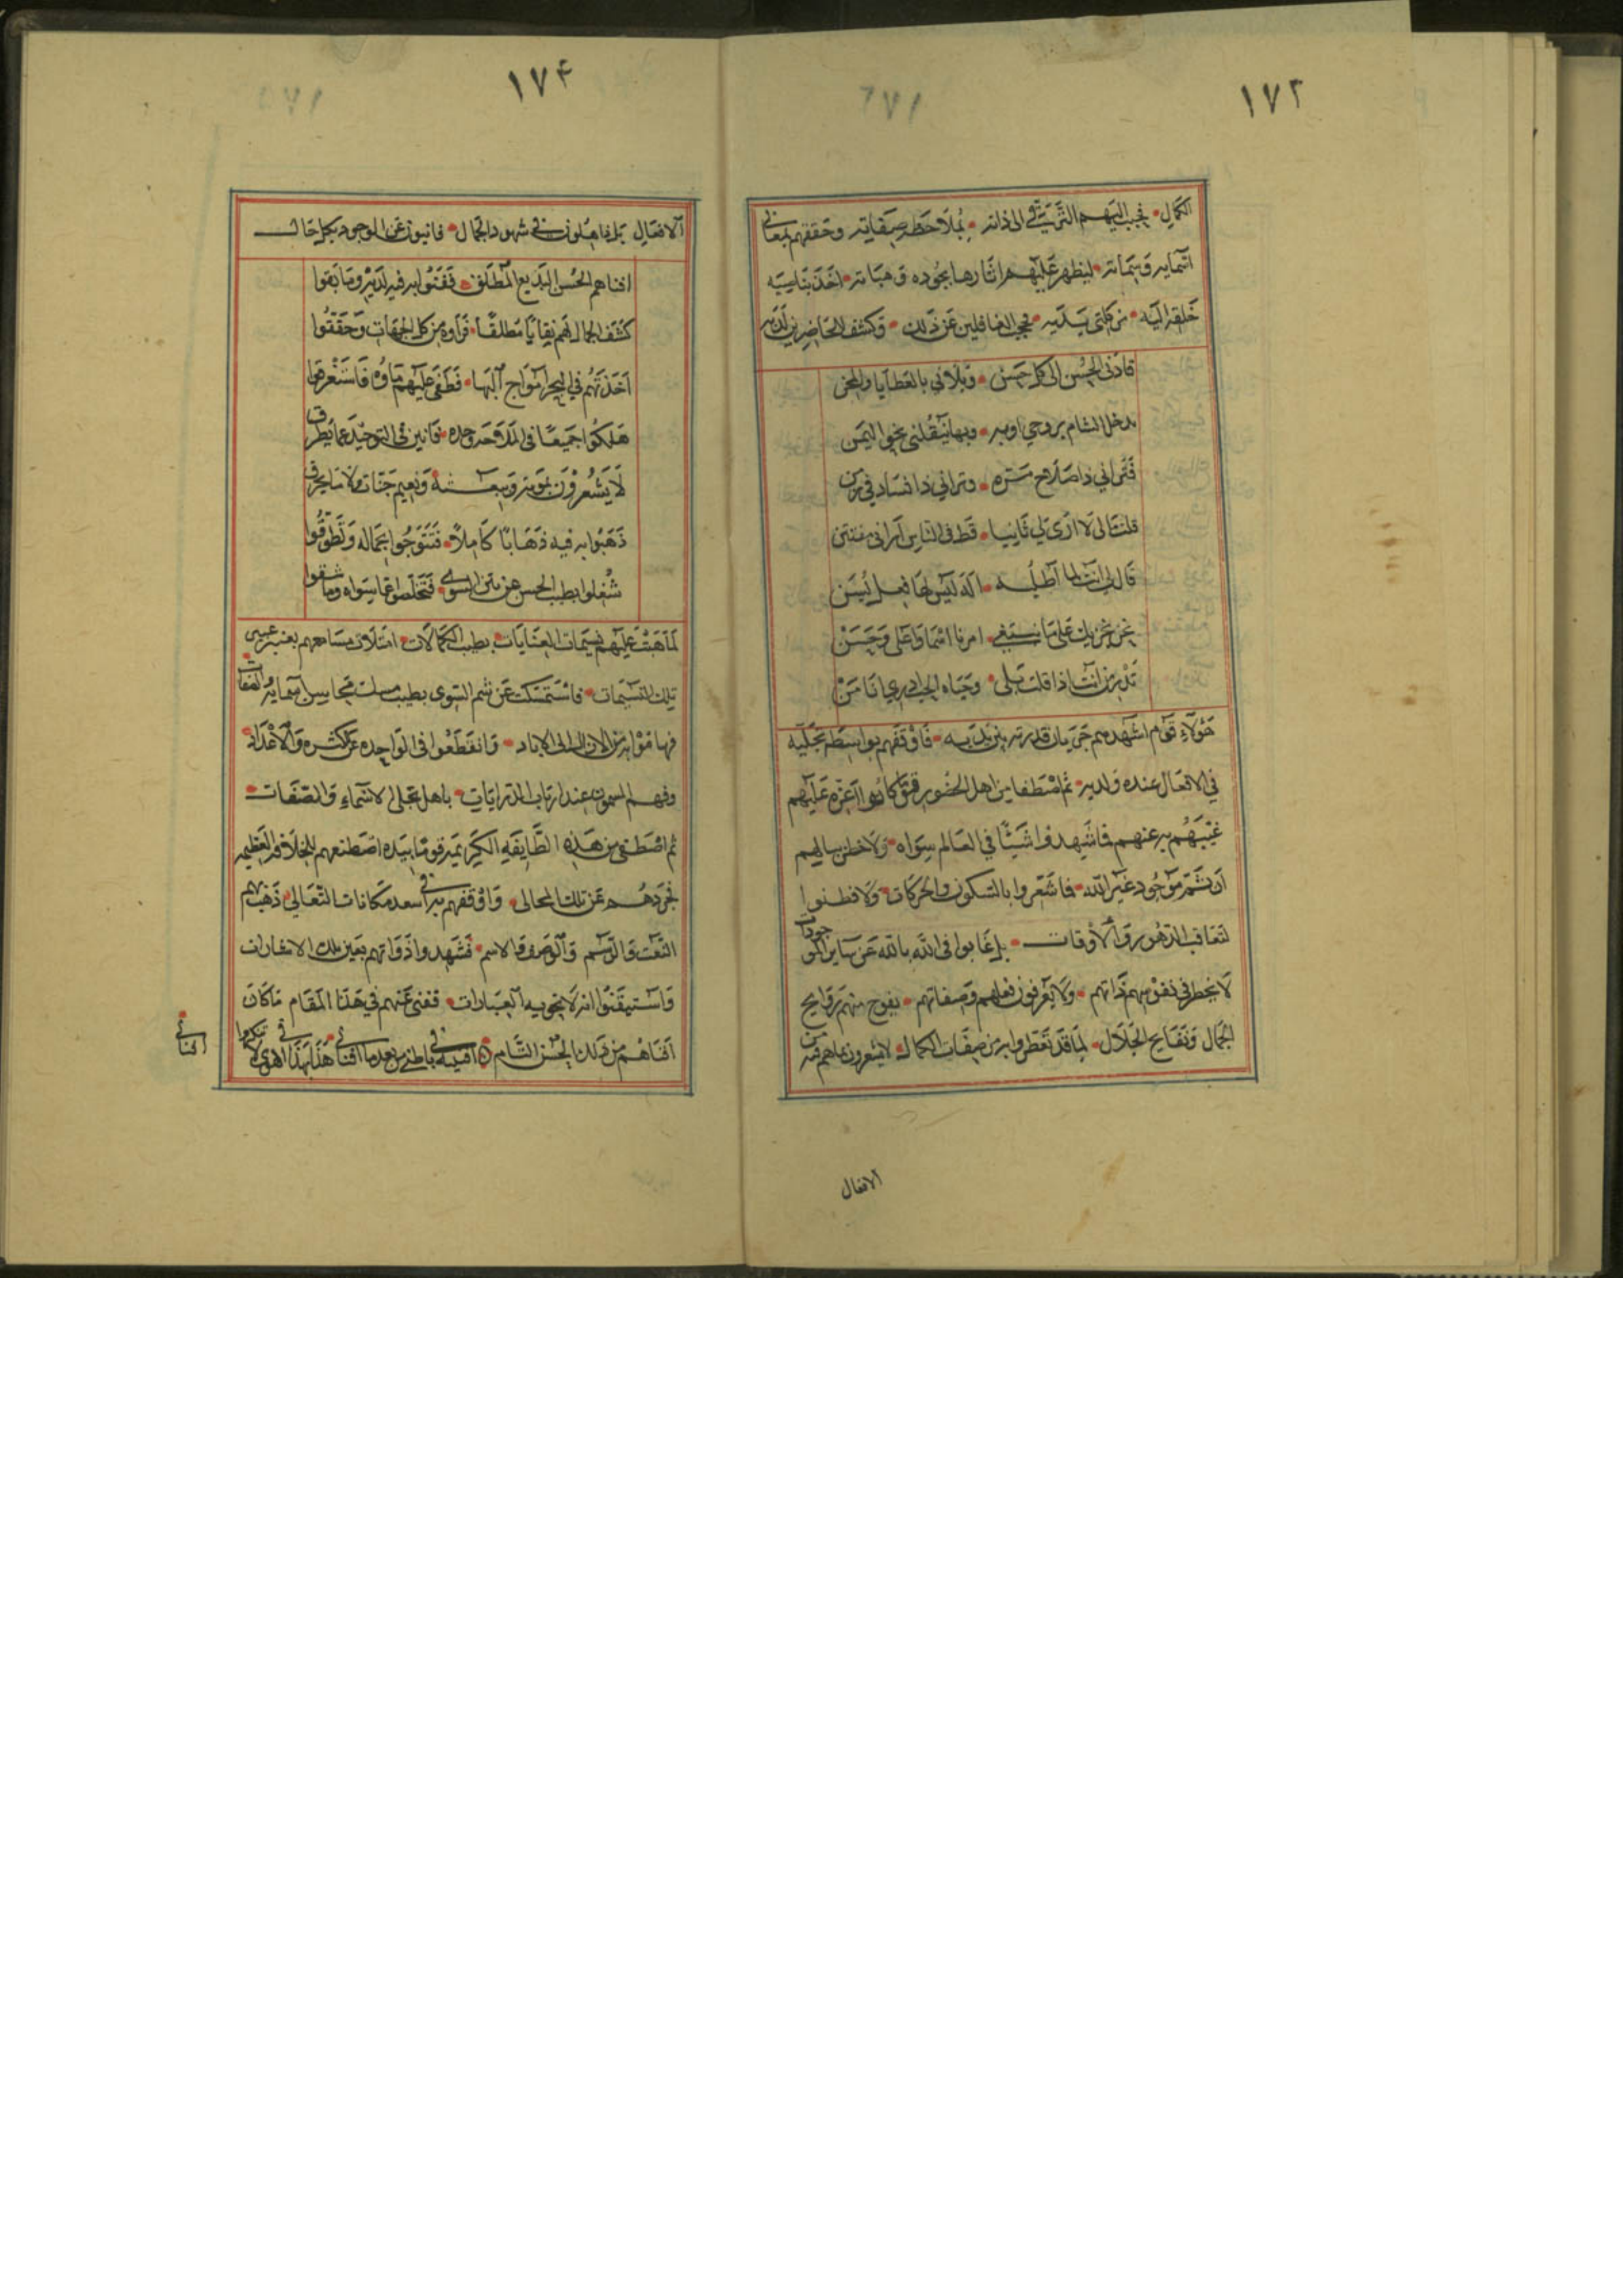 ١٧٣
الكمال • فجبب اليهم الترقي الى ذاته • بملاحظه صفاته وحققهم بمعاني
اسمايه وسماته • ليظهر عليهم اثارها بجوده وهباته • اخذ بناصيه
خلقه اليه • من كلتى يديه • فحجب الغافلين عن ذلك • وكشف للحاضرين لديه
قادنى الحسن الى كل حسن • وبلانى بالعطايا والمحن
يدخل الشام بروحي اوبه • وبها ينقلنى نحو اليمن
فترانى ذا صلاح مَرّه • وترانى ذا فساد فى
قلت مالى لا ارى لي ثانيا • قط فى الناس ارانى مفتتن
قال لى انت لما اطلبه • اله ليس لها فعل يُسَن
نحن نجريك على ما نبتغي • امرنا اسما واعلى وحسن
تدر من انت اذا قلت بلى • وحياه الحب ادر عيانا من
هؤلاء قوم اشهدهم جريان قدرته بين يديه • فاوقفهم بواسطه تجليه
في الافعال عنده ولديه • ثم اصطفا من اهل الحضور قوما كانوا اعزه عليهم
غيبهم به عنهم فما شهدوا شيئا في العالم سواه • ولا خطر ببالهم
ان ثم موجود غير الله • فما شعروا بالسكون والحركات • ولا فطنوا
لتعاقب الدهور والاوقات • بل غابوا فى الله بالله عن ساير الموجودات
لا يخطر فى نفوسهم ذاتهم • ولا يعرفون فعلهم وصفاتهم • يفوح منهم روايح
الجمال ونفايح الجلال • لما قد تعطروا به من صفات الكمال • لا يشعرون بما هم فيه من
الافعال
١٧٤
الافعال بل ذاهلون في شهود الجمال • فانيون عن الوجود بكل حال
افناهم الحسن البديع المطلق • ففنوا به فيه لديه وما بقوا
كشف الجمال لهم نقابا مطلقا • فراوه من كل الجهات وحققوا
اخذتهم في البحر امواج البها • فطفى عليهم ماؤه فاستغرقوا
هلكوا جميعا فى المد وحده • فانين فى التوحيد عما يطرق
لا يشعرون بموته وبعثه • ونعيم جنات ولا نا يحرق
ذهبوا به فيه ذهابا كاملاً • فتتوجوا بجماله وتطوقوا
شُغلوا بطيب الحسن عن نتن السوى • فتخلصوا عما سواه وما شقوا
لما هبت عليهم نسيمات العنايات • بطيب الكمالات • امتلات مسامعهم بعنبر عبير
تلك النسيمات • فاستمسكت عن شم السوى بطيب مسك محاسن اسمايه والصفات
فهاموا به من الازال الى الاباد • وانقطعوا فى الواحده عن الكثره والاعداد •
وفهم المسمون عند ارباب الدرايات • باهل تجلى الاسماء والصفات •
ثم اصطفى من هذه الطايفه الكريمه قوما بيده اصطنعهم للخلافه العظيمه
فجردهم عن تلك المحالى • واوقفهم به في اسعد مكانات التعالى • ذهب بهم
النعت والوسم والوصف والاسم • فشهدوا ذواتهم بعين تلك الاشارات
واستيقنوا انه لا يحويه العبارات • ففنى عنهم في هذا المقام ما كان
افناهم من ذلك الحسن التام • افنيت في باطنى من بعد ما افنانى هذا بهذا الهوى
افنانى